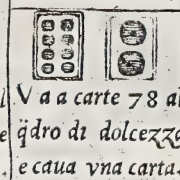 l V a a carte 78 al
q̃dro di dolcezza
e e caua vna carta.